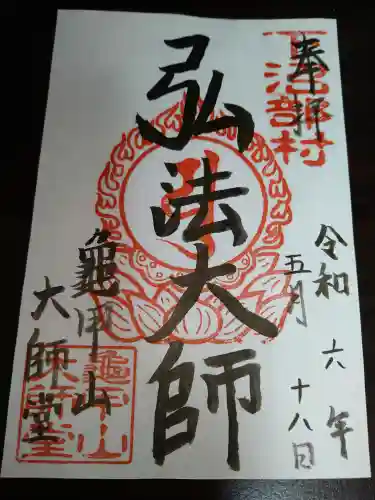 奉拝
下沼部村
弘法大師
令和六年
五月十八日
亀甲山
大師堂
亀甲山
大師堂